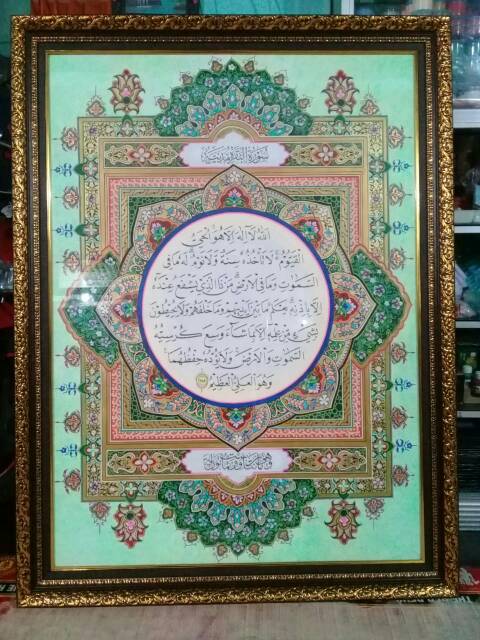 سورة البقرة مدنية
الله لا إله إلا هو الحي
القيوم لا تأخذه سنة ولا نوم له ما في
السموت وما في الارض من ذا الذي يشفع عنده
إلا بإذنه يعلم ما بين ايديهم وما خلفهم ولا يحيطون
بشيء من علمه إلا بما شاء وسع كرسيه
السموت والارض ولا يؤده حفظهما
وهو العلي العظيم